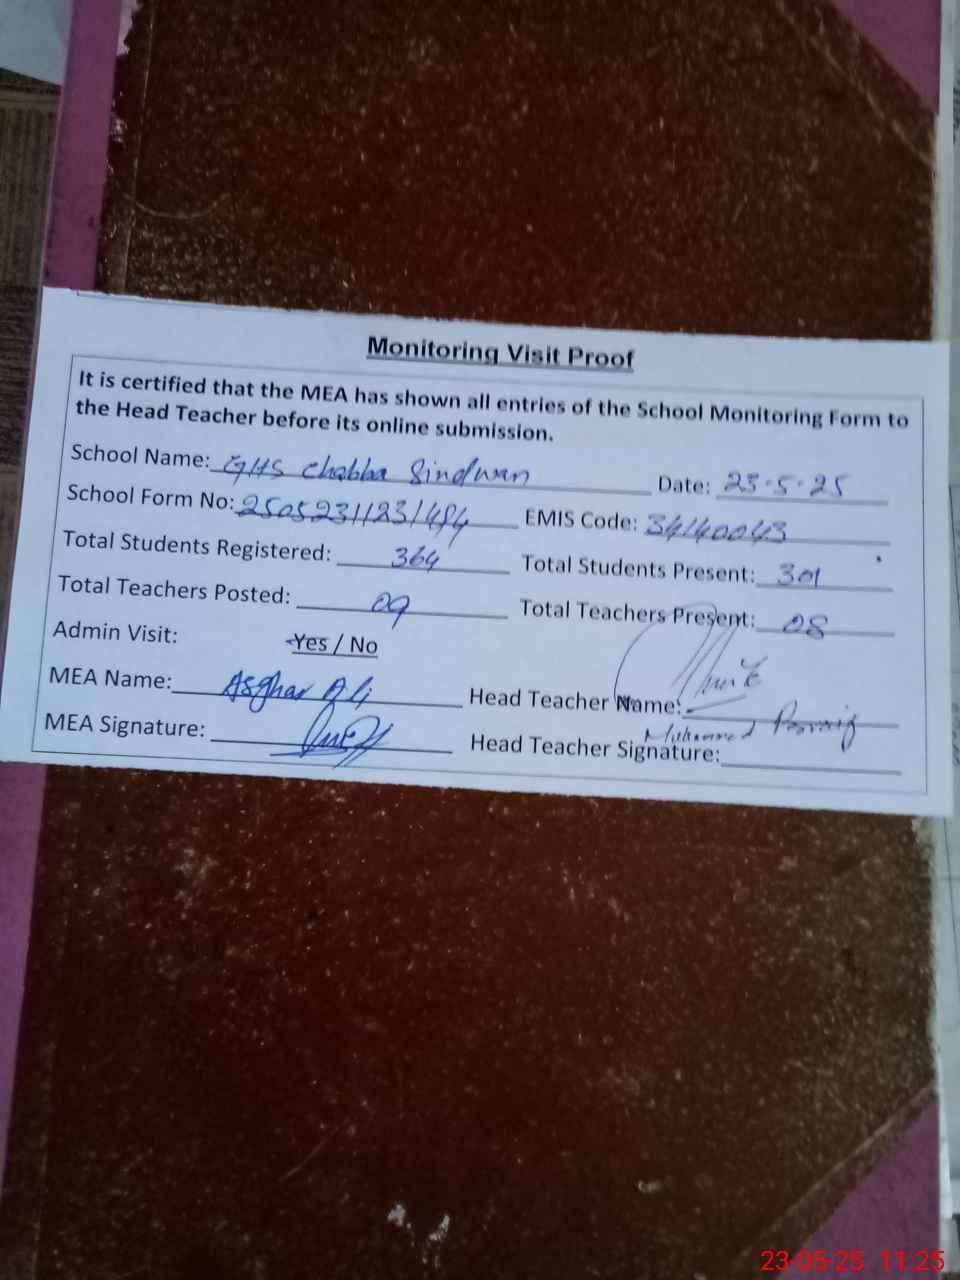 Monitoring Visit Proof
It is certified that the MEA has shown all entries of the School Monitoring Form to
the Head Teacher before its online submission.
School Name: GHS Chabba Sindwan Date: 23-5-25
School Form No: EMIS Code: 34140043
Total Students Registered: 364 Total Students Present: 301
Total Teachers Posted: 09 Total Teachers Present: 08
Admin Visit: Yes / No
MEA Name: Asghar Ali Head Teacher Name:
Muhammad
MEA Signature: Head Teacher Signature:
23-05-25 11:25